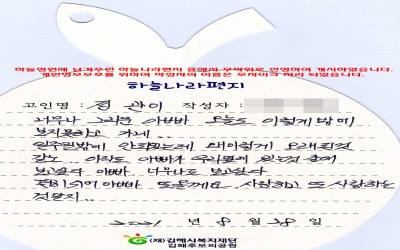 하늘정원에 남겨주신 하늘나라편지 중에서 무작위로 선정하여 게시하였습니다.
개인정보보호를 위하여 작성자의 이름은 모자이크 처리 되었습니다.
하늘나라편지
고인명 : 정 관이 작성자 :
너무나 그리운 아빠빠 오늘도 이렇게 밖에
보지못하고 가네..
일주일밖에 안되었는데 왜이렇게 오래된것
같노.. 아직도 아빠가 우리곁에 있는것 같애
보고싶다 아빠. 너무나도 보고싶다
또올께요. 사랑하고 또 사랑하는
2021 년 8 월 28 일
(재)김해시복지재단
김해추모의공원